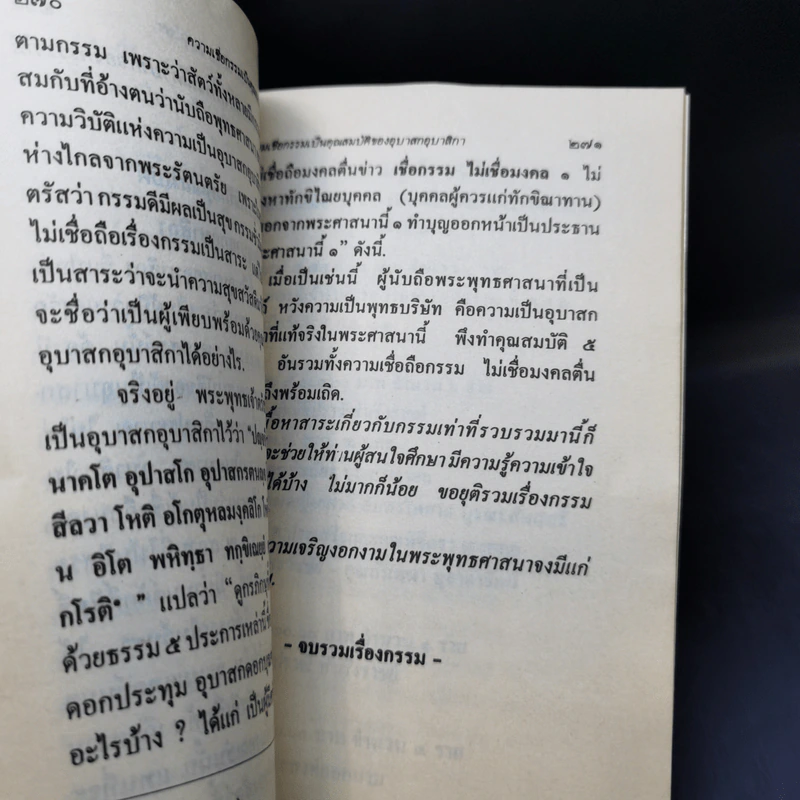 ๒๗๐
ความเชื่อกรรมเป็น
ตามกรรม เพราะว่าสัตว์ทั้งหลาย
สมกับที่อ้างตนว่านับถือพุทธศาสนา
ความวิบัติแห่งความเป็นอุบาสก
ห่างไกลจากพระรัตนตรัย เพราะ
ตรัสว่า กรรมดีมีผลเป็นสุข กรรม
ไม่เชื่อถือเรื่องกรรมเป็นสาระ
เป็นสาระว่าจะนำความสุขสวัสดิ
จะชื่อว่าเป็นผู้เพียบพร้อมด้วย
อุบาสกอุบาสิกาได้อย่างไร.
จริงอยู่ พระพุทธเจ้า
เป็นอุบาสกอุบาสิกาไว้ว่า
นาคโต อุปาสโก อุปาสกรตน
สีลวา โหติ อโกตุหลมงฺคลิโก
น อิโต พหิทฺธา ทกฺขิเณยฺยํ
กโรติ" แปลว่า "ดูกรภิกษุ
ด้วยธรรม ๕ ประการเหล่านี้
ดอกประทุม อุบาสกดอกบุ
อะไรบ้าง ? ได้แก่ เป็นผู้มี
เชื่อกรรมเป็นคุณสมบัติของอุบาสกอุบาสิกา ๒๗๑
เชื่อถือมงคลตื่นข่าว เชื่อกรรม ไม่เชื่อมงคล ๑ ไม่
งหาทักขิไณยบุคคล (บุคคลผู้ควรแก่ทักขิณาทาน)
อกจากพระศาสนานี้ ๑ ทำบุญออกหน้าเป็นประธาน
ะศาสนานี้ ๑" ดังนี้.
เมื่อเป็นเช่นนี้ ผู้นับถือพระพุทธศาสนาที่เป็น
์ หวังความเป็นพุทธบริษัท คือความเป็นอุบาสก
าที่แท้จริงในพระศาสนานี้ พึงทำคุณสมบัติ ๕
อันรวมทั้งความเชื่อถือกรรม ไม่เชื่อมงคลตื่น
ถึงพร้อมเถิด.
นื้อหาสาระเกี่ยวกับกรรมเท่าที่รวบรวมมานี้ก็
จะช่วยให้ท่านผู้สนใจศึกษา มีความรู้ความเข้าใจ
ได้บ้าง ไม่มากก็น้อย ขอยุติรวมเรื่องกรรม
วามเจริญงอกงามในพระพุทธศาสนาจงมีแก่
- จบรวมเรื่องกรรม -